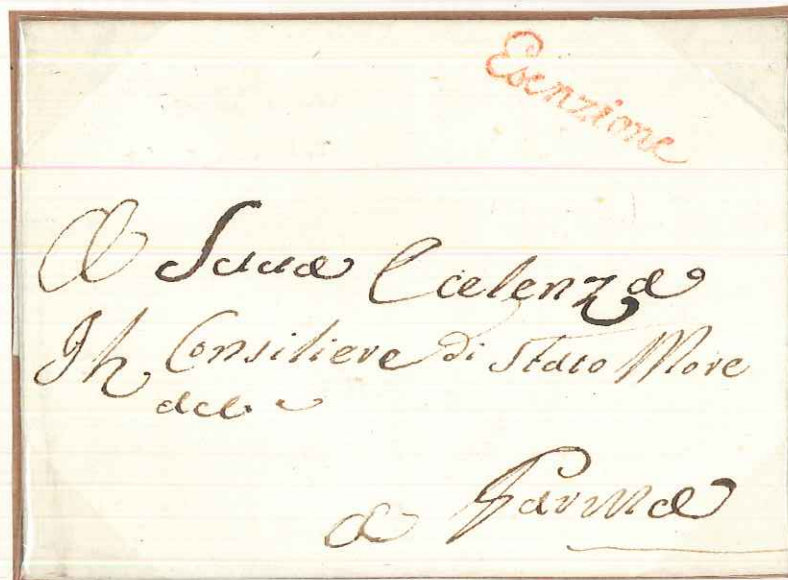 Esenzione
A Sua Ecelenza
Il Consiliere di Stato More
a Parma